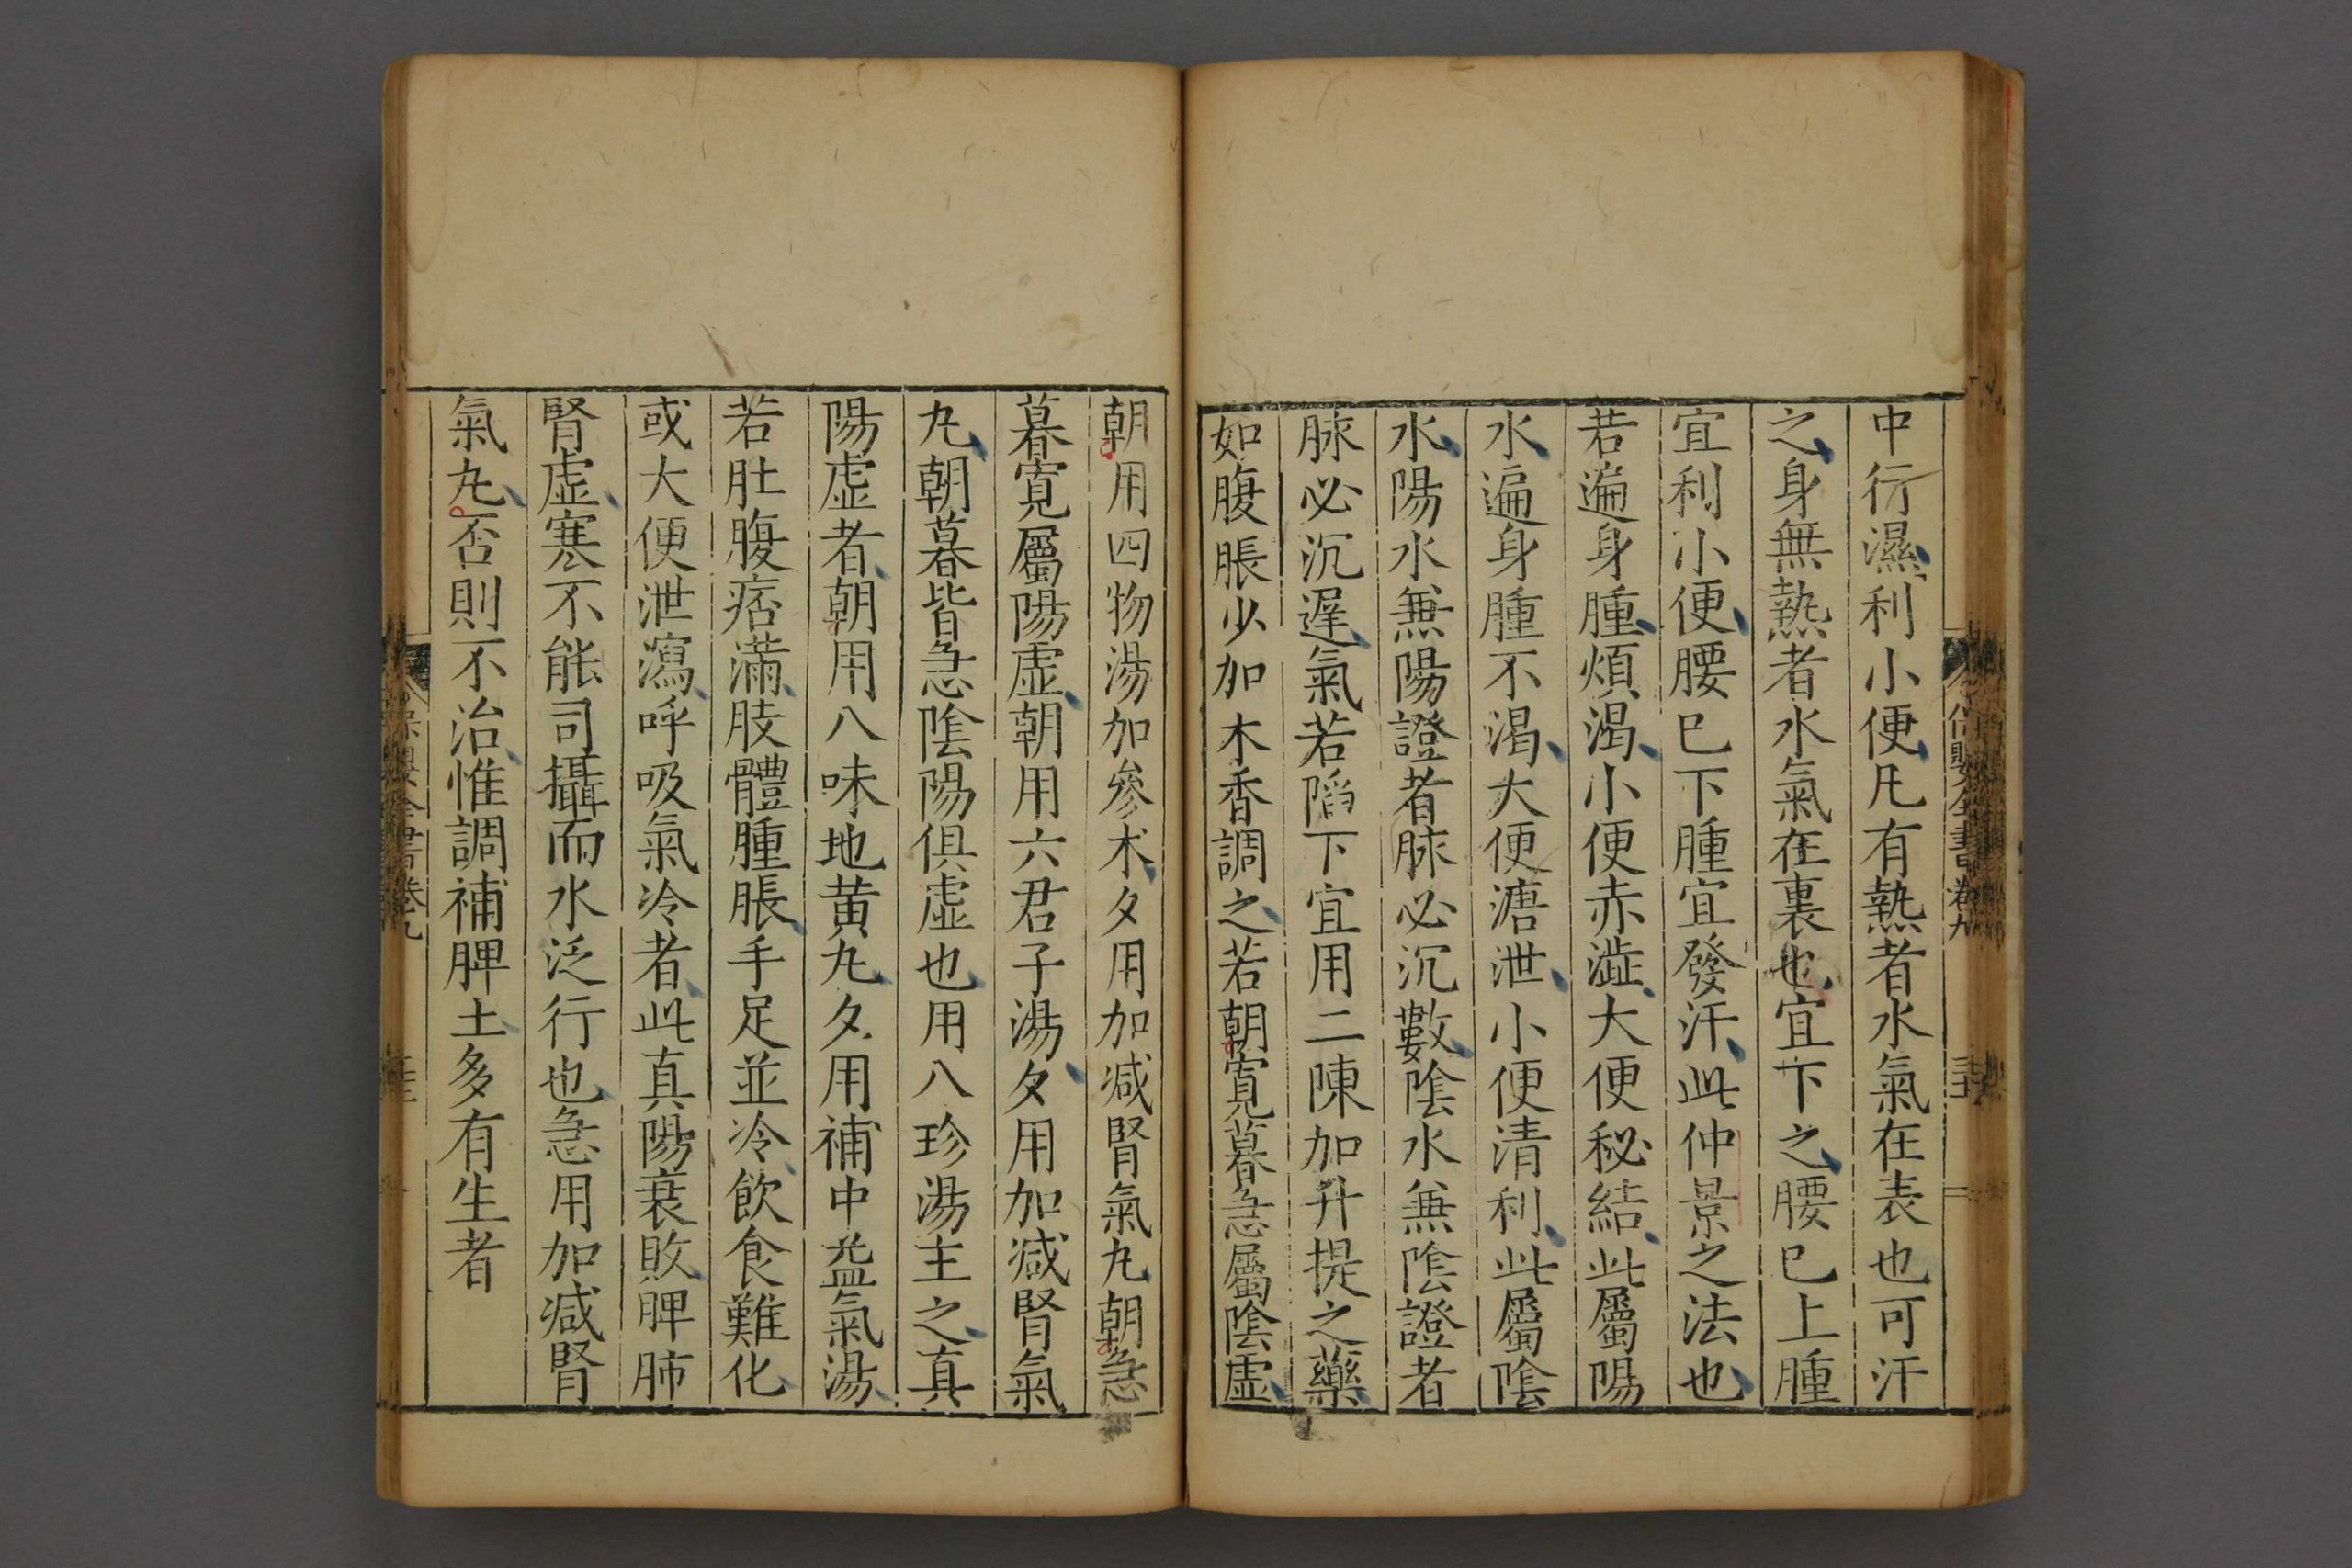 中行濕利小便凡有熱者水氣在表也可汗
之身無熱者水氣在裏也宜下之腰已上腫
宜利小便腰已下腫宜發汗此仲景之法也
若遍身腫煩渴小便赤澁大便秘結此屬陽
水遍身腫不渴大便溏泄小便清利此屬陰
水陽水無陽證者脉必沉數陰水無陰證者
脉必沉遲氣若陷下宜用二陳加升提之藥
如腹脹少加木香調之若朝寛暮急屬陰虛
朝用四物湯加參术夕用加减腎氣丸朝急
暮寛屬陽虛朝用六君子湯夕用加减腎氣
丸朝暮皆急陰陽俱虛也用八珍湯主之真
陽虛者朝用八味地黄丸夕用補中益氣湯
若肚腹痞滿肢體腫脹手足並冷飲食難化
或大便泄瀉呼吸氣冷者此真陽衰敗脾肺
腎虛寒不能司攝而水泛行也急用加减腎
氣丸否則不治惟調補脾土多有生者